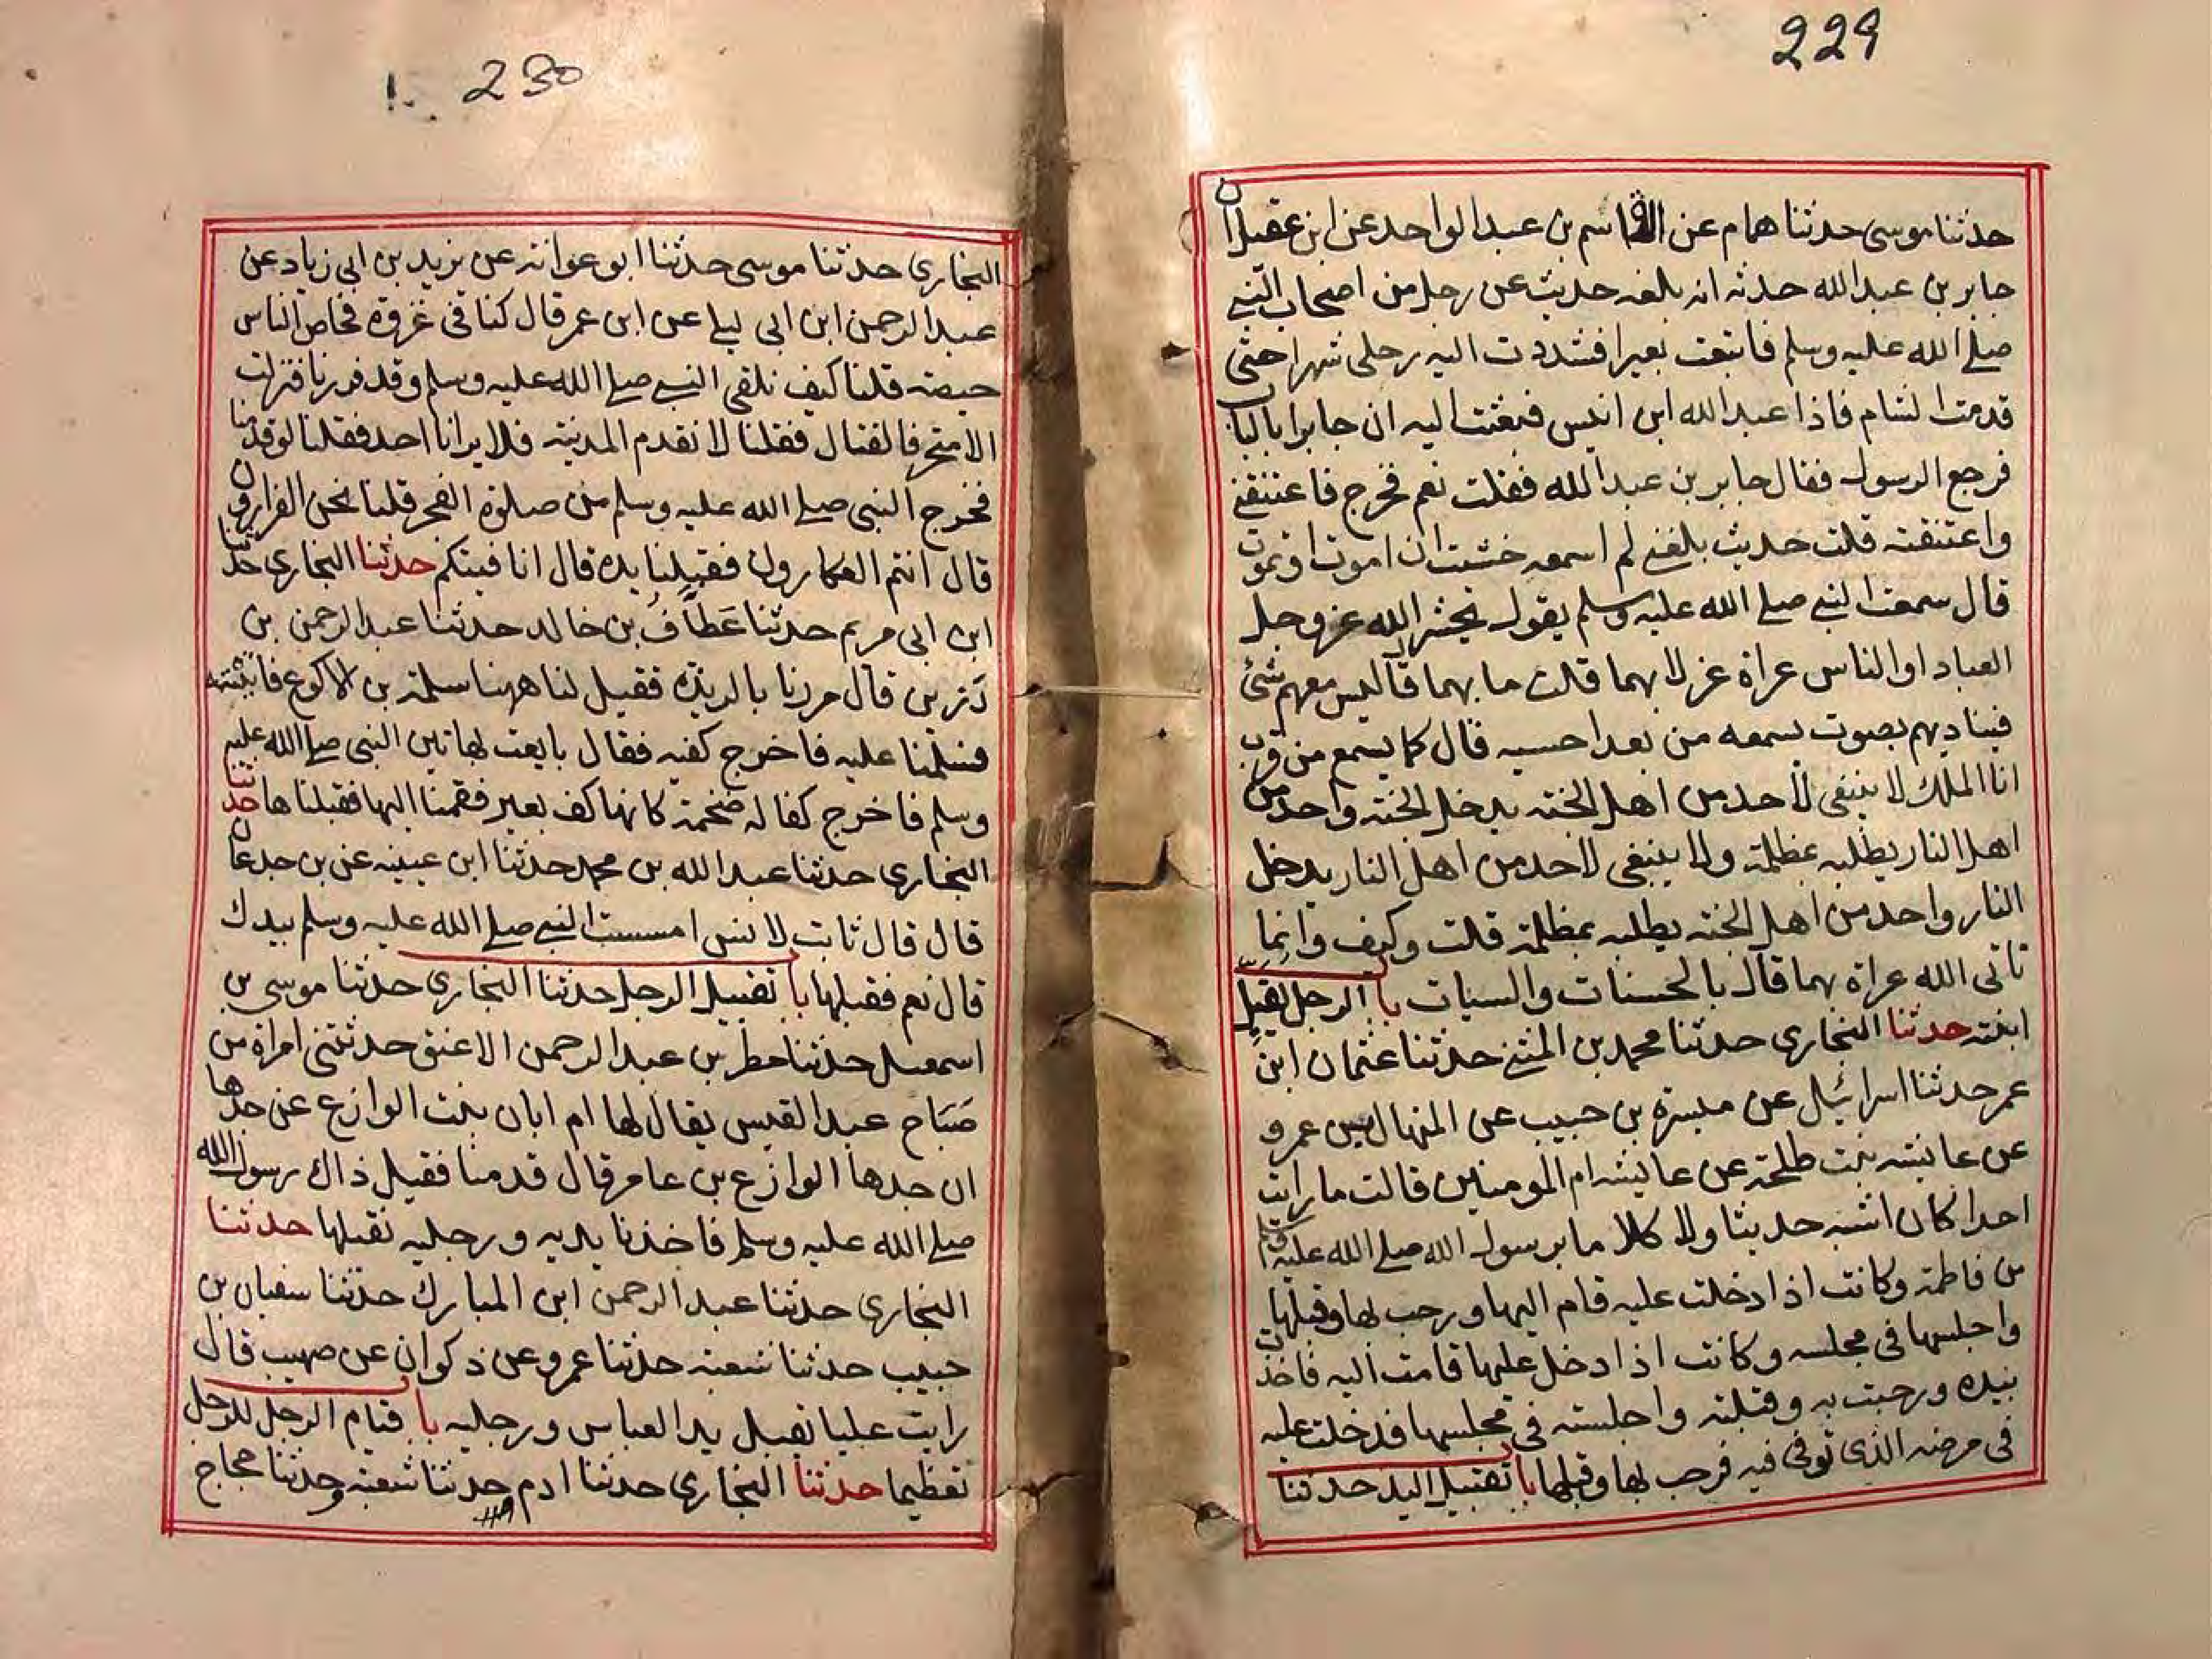 229
حدثنا موسى حدثنا همام عن القاسم بن عبد الواحد عن ابن عقيل ان
جابر بن عبد الله حدثه انه بلغه حديث عن رجل من اصحاب النبي
صلى الله عليه وسلم فابتعت بعيرا فشددت اليه رحلي شهرا حتى
قدمت الشام فاذا عبد الله ابن انيس فبعثت اليه ان جابرا بالباب
فرجع الرسول فقال جابر بن عبد الله فقلت نعم فخرج فاعتنقني
واعتنقته قلت حديث بلغني لم اسمعه خشيت ان اموت او تموت
قال سمعت النبي صلى الله عليه وسلم يقول يحشر الله عز وجل
العباد او الناس عراة غرلا بهما قلت ما بهما قال ليس معهم شئ
فيناديهم بصوت يسمعه من بعد احسبه قال كما يسمع من قرب
انا الملك لا ينبغي لاحد من اهل الجنه يدخل الجنه واحد من
اهل النار يطلبه بمظلمة ولا ينبغي لاحد من اهل النار يدخل
النار واحد من اهل الجنه يطلبه بمظلمة قلت وكيف وانما
ناتى الله عراة بهما قال بالحسنات والسيات باب الرجل يقبل
ابنته حدثنا البخاري حدثنا محمد بن المثنى حدثنا عثمان ابن
عمر حدثنا اسرائيل عن ميسرة بن حبيب عن المنهال بن عمرو
عن عايشه بنت طلحة عن عايشه ام المومنين قالت ما رايت
احدا كان اشبه حديثا ولا كلاما برسول الله صلى الله عليه وسلم
من فاطمة وكانت اذا دخلت عليه قام اليها ورحب بها وقبلها
واجلسها في مجلسه وكانت اذا دخل عليها قامت اليه فاخذت
بيده ورحبت به وقبلته واجلسته في مجلسها فدخلت عليه
في مرضه الذي توفى فيه فرحب بها وقبلها باب تقبيل اليد حدثنا
230
البخاري حدثنا موسى حدثنا ابو عوانه عن يزيد بن ابي زياد عن
عبد الرحمن ابن ابي ليلى عن ابن عمر قال كنا في غزوة فحاص الناس
حيصه قلنا كيف نلقى النبي صلى الله عليه وسلم وقد فررنا فنزلت
الا متحرفا لقتال فقلنا لا نقدم المدينه فلا يرانا احد فقلنا لو قدمنا
فخرج النبي صلى الله عليه وسلم من صلوة الفجر قلنا نحن الفرارون
قال انتم العكارون فقبلنا يده قال انا فيتكم حدثنا البخاري حدثنا
ابن ابي مريم حدثنا عَطَّافُ بن خالد حدثنا عبد الرحمن بن
رَزين قال مررنا بالربذة فقيل لنا ههنا سلمة بن الاكوع فاتيته
فسلمنا عليه فاخرج كفيه فقال بايعت بهاتين النبي صلى الله عليه
وسلم فاخرج كفا له ضخمة كانها كف بعير فقمنا اليها فقبلناها حدثنا
البخاري حدثنا عبد الله بن محمد حدثنا ابن عيينه عن بن جدعان
قال قال ثابت لانس امسست النبي صلى الله عليه وسلم بيدك
قال نعم فقبلها باب تقبيل الرجل حدثنا البخاري حدثنا موسى بن
اسمعيل حدثنا مطر بن عبد الرحمن الاعنق حدثتني امراة من
صَبَاح عبد القيس يقال لها ام ابان بنت الوازع عن جدها
ان جدها الوازع بن عامر قال قدمنا فقيل ذاك رسول الله
صلى الله عليه وسلم فاخذنا بيديه ورجليه نقبلها حدثنا
البخاري حدثنا عبد الرحمن ابن المبارك حدثنا سفيان بن
حبيب حدثنا شعبه حدثنا عمرو عن ذكوان عن صهيب قال
رايت عليا يقبل يد العباس ورجليه باب قيام الرجل للرجل
تعظيما حدثنا البخاري حدثنا ادم حدثنا شعبه وحدثنا حجاج